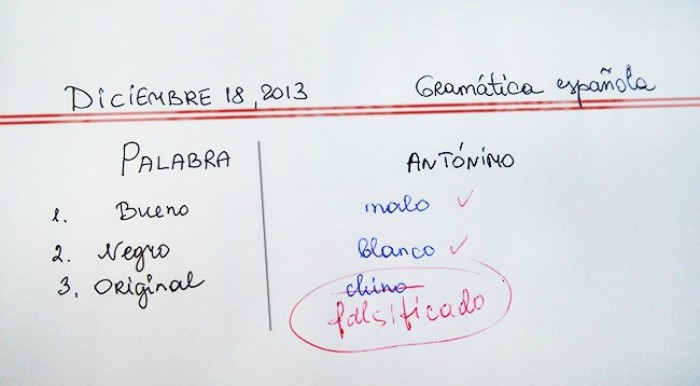 Diciembre 18, 2013 Gramática española
Palabra Antónimo
1. Bueno malo ✓
2. Negro blanco ✓
3. Original chino
falsificado